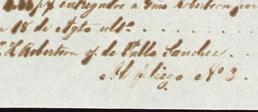 entregados a Dmo Robertson por
15 de Agto ulto . . . . .
Robertson y de Pablo Sanchez . . .
Al pliego No 3.